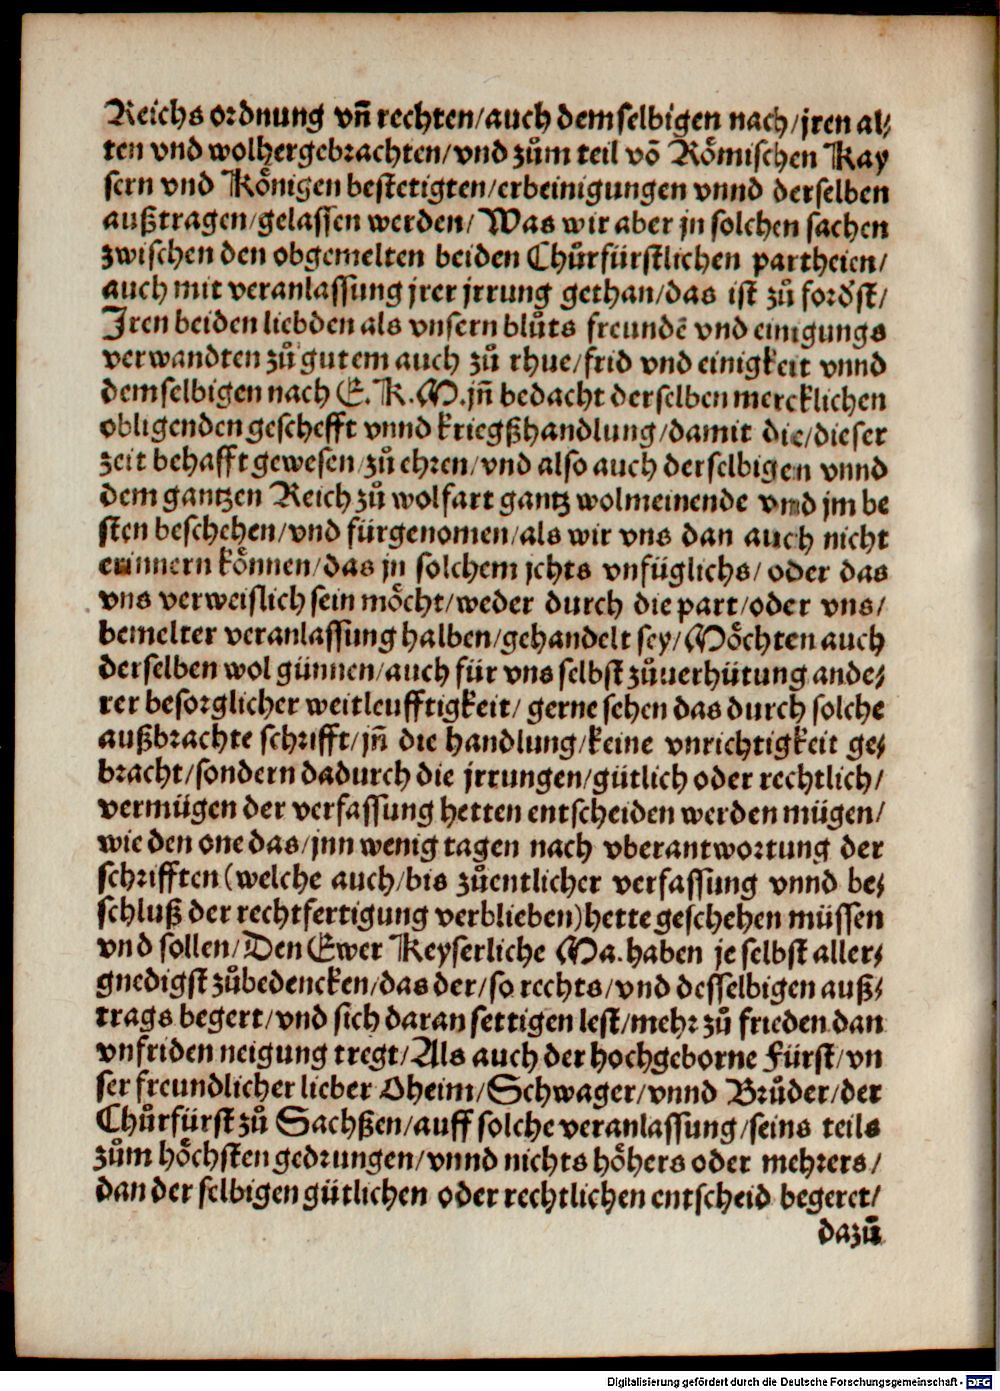 Reichs ordnung vn̄ rechten/auch demselbigen nach/jren al⸗
ten vnd wolhergebrachten/vnd zům teil vō Römischen Kay
sern vnd Königen bestetigten/erbeinigungen vnnd derselben
außtragen/gelassen werden/Was wir aber jn solchen sachen
zwischen den obgemelten beiden Chůrfürstlichen partheien/
auch mit veranlassung jrer jrrung gethan/das ist zů ford'st/
Jren beiden liebden als vnsern blůts freundē vnd einigungs
verwandten zů gutem auch zů rhue/frid vnd einigkeit vnnd
demselbigen nach E. K. M. jn̄ bedacht derselben mercklichen
obligenden geschefft vnnd kriegßhandlung/damit die/dieser
zeit behafft gewesen/zů ehren/vnd also auch derselbigen vnnd
dem gantzen Reich zů wolfart gantz wolmeinende vnd jm be
sten beschehen/vnd fürgenomen/als wir vns dan auch nicht
erinnern können/das jn solchem jchts vnfüglichs/ oder das
vns verweislich sein möcht/weder durch die part/oder vns/
bemelter veranlassung halben/gehandelt sey/Möchten auch
derselben wol günnen/auch für vns selbst zůuerhütung ande⸗
rer besorglicher weitleufftigkeit/ gerne sehen das durch solche
außbrachte schrifft/jn̄ die handlung/keine vnrichtigkeit ge⸗
bracht/sondern dadurch die jrrungen/gütlich oder rechtlich/
vermügen der verfassung hetten entscheiden werden mügen/
wie den one das/jnn wenig tagen nach vberantwortung der
schrifften(welche auch/bis zůentlicher verfassung vnnd be⸗
schluß der rechtfertigung verblieben)hette geschehen müssen
vnd sollen/Den Ewer Keyserliche Ma. haben je selbst aller⸗
gnedigst zůbedencken/das der/so rechts/vnd desselbigen auß⸗
trags begert/vnd sich daran settigen lest/mehr zů frieden dan
vnfriden neigung tregt/Als auch der hochgeborne Fürst/vn
ser freundlicher lieber Oheim/Schwager/vnnd Brůder/der
Chůrfürst zů Sachßen/auff solche veranlassung/seins teils
zům höchsten gedrungen/vnnd nichts höhers oder mehrers/
dan der selbigen gütlichen oder rechtlichen entscheid begeret/
dazů
Digitalisierung gefördert durch die Deutsche Forschungsgemeinschaft - DFG